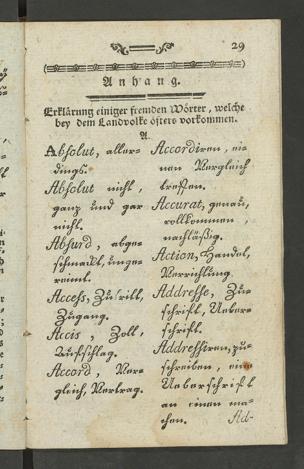 29
Anhang.
Erklärung einiger fremden Wörter, welche
bey dem Landvolke öfters vorkommen.
A.
Absolut, aller-
dings.
Absolut nicht,
ganz und gar
nicht.
Absurd, abge-
schmackt, unge-
reimt.
Access, Zutritt,
Zugang.
Accis, Zoll,
Aufschlag.
Accord, Ver-
gleich, Vertrag.
Accordiren, ei-
nen Vergleich
treffen.
Accurat, genau,
vollkommen,
Action, Handel,
Verrichtung.
Addresse, Zu-
schrift, Ueber-
schrift.
Addressiren, zu-
schreiben, eine
Ueberschrift
an einen ma-
chen.
Ad-